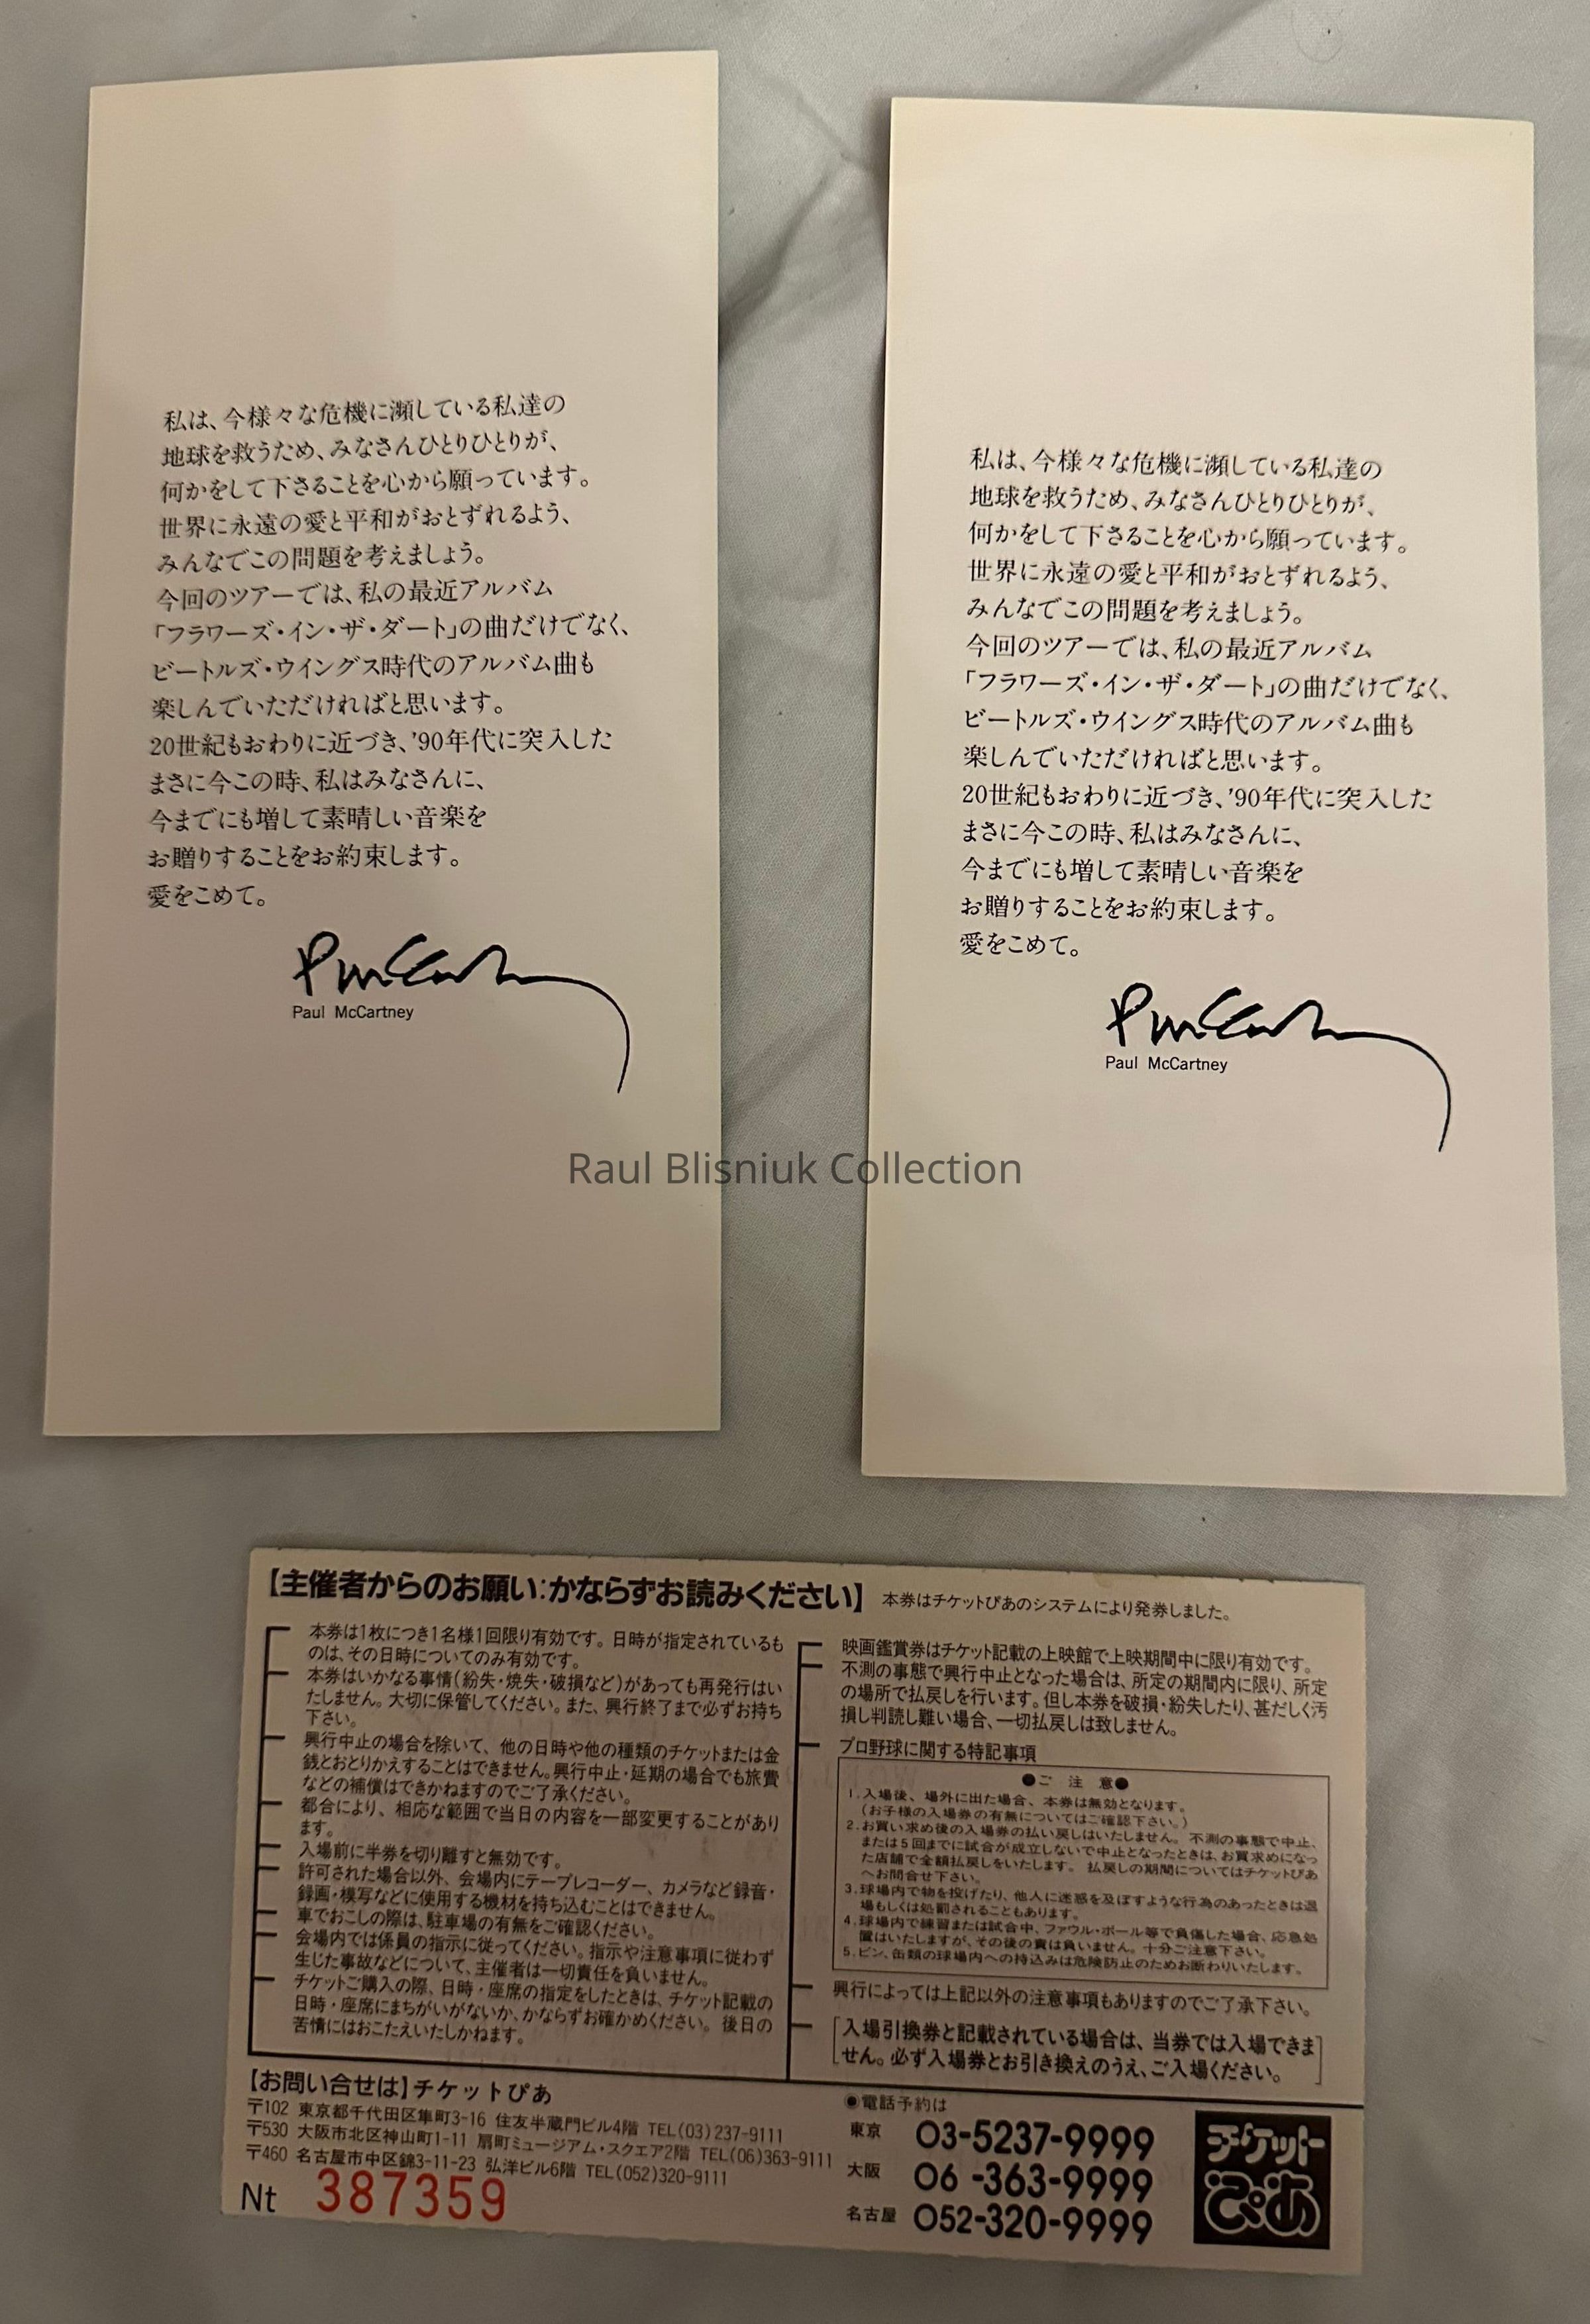 私は、今様々な危機に瀕している私達の
地球を救うため、みなさんひとりひとりが、
何かをして下さることを心から願っています。
世界に永遠の愛と平和がおとずれるよう、
みんなでこの問題を考えましょう。
今回のツアーでは、私の最近アルバム
「フラワーズ・イン・ザ・ダート」の曲だけでなく、
ビートルズ・ウイングス時代のアルバム曲も
楽しんでいただければと思います。
20世紀もおわりに近づき、'90年代に突入した
まさに今この時、私はみなさんに、
今までにも増して素晴しい音楽を
お贈りすることをお約束します。
愛をこめて。
Paul McCartney
私は、今様々な危機に瀕している私達の
地球を救うため、みなさんひとりひとりが、
何かをして下さることを心から願っています。
世界に永遠の愛と平和がおとずれるよう、
みんなでこの問題を考えましょう。
今回のツアーでは、私の最近アルバム
「フラワーズ・イン・ザ・ダート」の曲だけでなく、
ビートルズ・ウイングス時代のアルバム曲も
楽しんでいただければと思います。
20世紀もおわりに近づき、'90年代に突入した
まさに今この時、私はみなさんに、
今までにも増して素晴しい音楽を
お贈りすることをお約束します。
愛をこめて。
Paul McCartney
Raul Blisniuk Collection
【主催者からのお願い:かならずお読みください】 本券はチケットぴあのシステムにより発券しました。
本券は1枚につき1名様1回限り有効です。日時が指定されているも
のは、その日時についてのみ有効です。
本券はいかなる事情(紛失・焼失・破損など)があっても再発行はい
たしません。大切に保管してください。また、興行終了まで必ずお持ち
下さい。
興行中止の場合を除いて、他の日時や他の種類のチケットまたは金
銭とおとりかえすることはできません。興行中止・延期の場合でも旅費
などの補償はできかねますのでご了承ください。
都合により、相応な範囲で当日の内容を一部変更することがあり
ます。
入場前に半券を切り離すと無効です。
許可された場合以外、会場内にテープレコーダー、カメラなど録音・
録画・模写などに使用する機材を持ち込むことはできません。
車でおこしの際は、駐車場の有無をご確認ください。
会場内では係員の指示に従ってください。指示や注意事項に従わず
生じた事故などについて、主催者は一切責任を負いません。
チケットご購入の際、日時・座席の指定をしたときは、チケット記載の
日時・座席にまちがいがないか、かならずお確かめください。後日の
苦情にはおこたえいたしかねます。
映画鑑賞券はチケット記載の上映館で上映期間中に限り有効です。
不測の事態で興行中止となった場合は、所定の期間内に限り、所定
の場所で払戻しを行います。但し本券を破損・紛失したり、甚だしく汚
損し判読し難い場合、一切払戻しは致しません。
プロ野球に関する特記事項
●ご注意●
1.入場後、場外に出た場合、本券は無効となります。
(お子様の入場券の有無についてはご確認下さい。)
2.お買い求め後の入場券の払い戻しはいたしません。不測の事態で中止、
または5回までに試合が成立しないで中止となったときは、お買求めになっ
た店舗で全額払戻しをいたします。払戻しの期間についてはチケットぴあ
へお問合せ下さい。
3.球場内で物を投げたり、他人に迷惑を及ぼすような行為のあったときは退
場もしくは処罰されることもあります。
4.球場内で練習または試合中、ファウル・ボール等で負傷した場合、応急処
置はいたしますが、その後の責は負いません。十分ご注意下さい。
5.ビン、缶類の球場内への持込みは危険防止のためお断わりいたします。
興行によっては上記以外の注意事項もありますのでご了承下さい。
[入場引換券と記載されている場合は、当券では入場できま
せん。必ず入場券とお引き換えのうえ、ご入場ください。]
【お問い合せは】チケットぴあ
〒102 東京都千代田区隼町3-16 住友半蔵門ビル4階 TEL(03)237-9111
〒530 大阪市北区神山町1-11 扇町ミュージアム・スクエア2階 TEL(06)363-9111
〒460 名古屋市中区錦3-11-23 弘洋ビル6階 TEL(052)320-9111
Nt 387359
●電話予約は
東京 03-5237-9999
大阪 06-363-9999
名古屋 052-320-9999
チケット
ぴあ